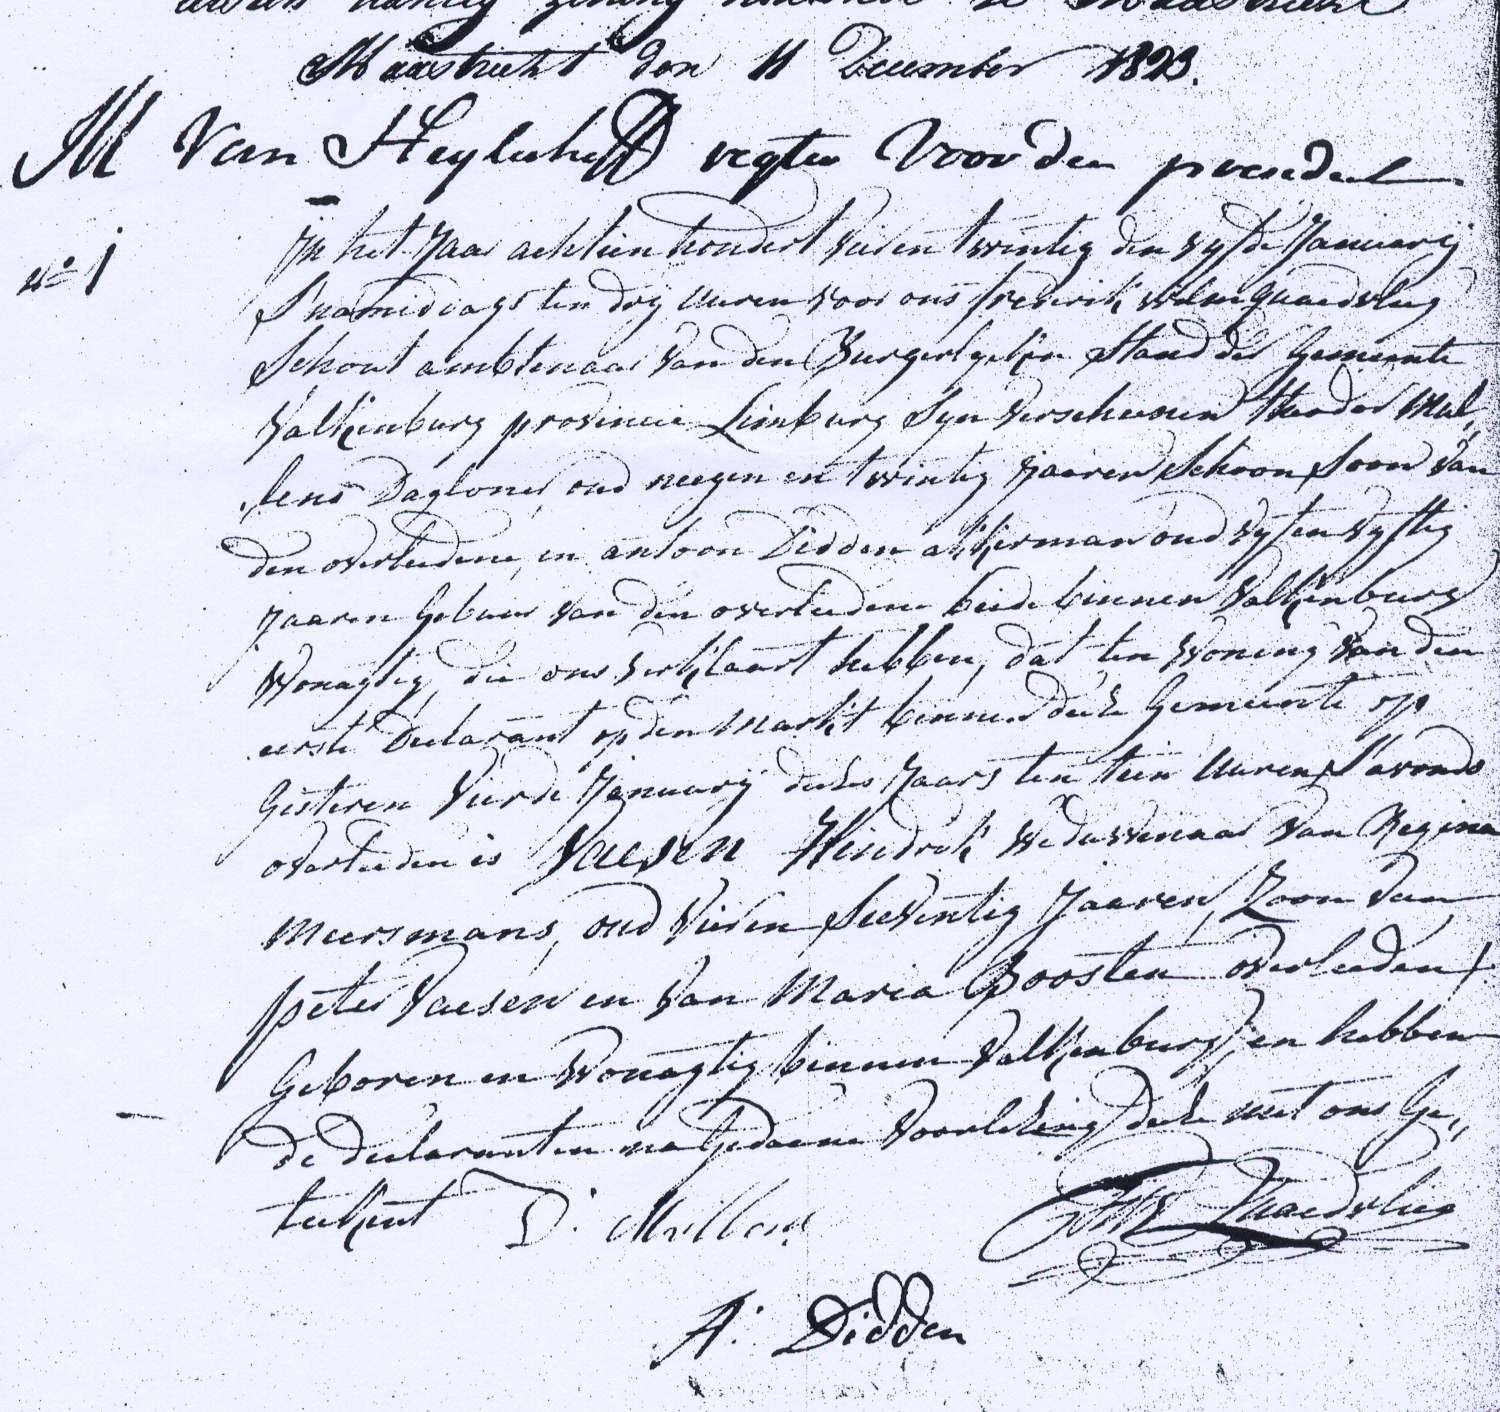 Maastricht den 11 December 1823.
M Van Heylerhoff regter voor den president
n° 1
In het Jaar achtien hondert vier en twintig den vyfde Januarij
S'namiddags ten drij uuren voor ons fredrik willem quaedvlieg
Schout ambtenaar van den Burgerlyken Stand der Gemeente
Valkenburg provincie Limburg Syn verscheenen Mul„
„lens Dagloner, oud neegen en twintig Jaaren Schoon Soon van
den overleedene, en antoon Didden akkerman oud vyf en vyftig
Jaaren Gebuur van den overleedene beide binnen Valkenburg
Wonagtig, die ons verklaart hebben, dat ten Woning van den
eerste Declarant op den Markt binnen deeze Gemeente op
Gisteren vierde January deezes Jaars ten tien uuren S'avonds
overleeden is Vaesen Hendrik weduwenaar van Regina
Meersmans, oud vier en Seeventig Jaaren, Zoon van
peter Vaesen en van Maria Boosten overleeden,
Geboren en Wonagtig binnen Valkenburg, en hebben
de declaranten na Gedaene Voorlezing deeze met ons Ge„
teekent D. Mullens FW Quaedvlieg
A: Didden